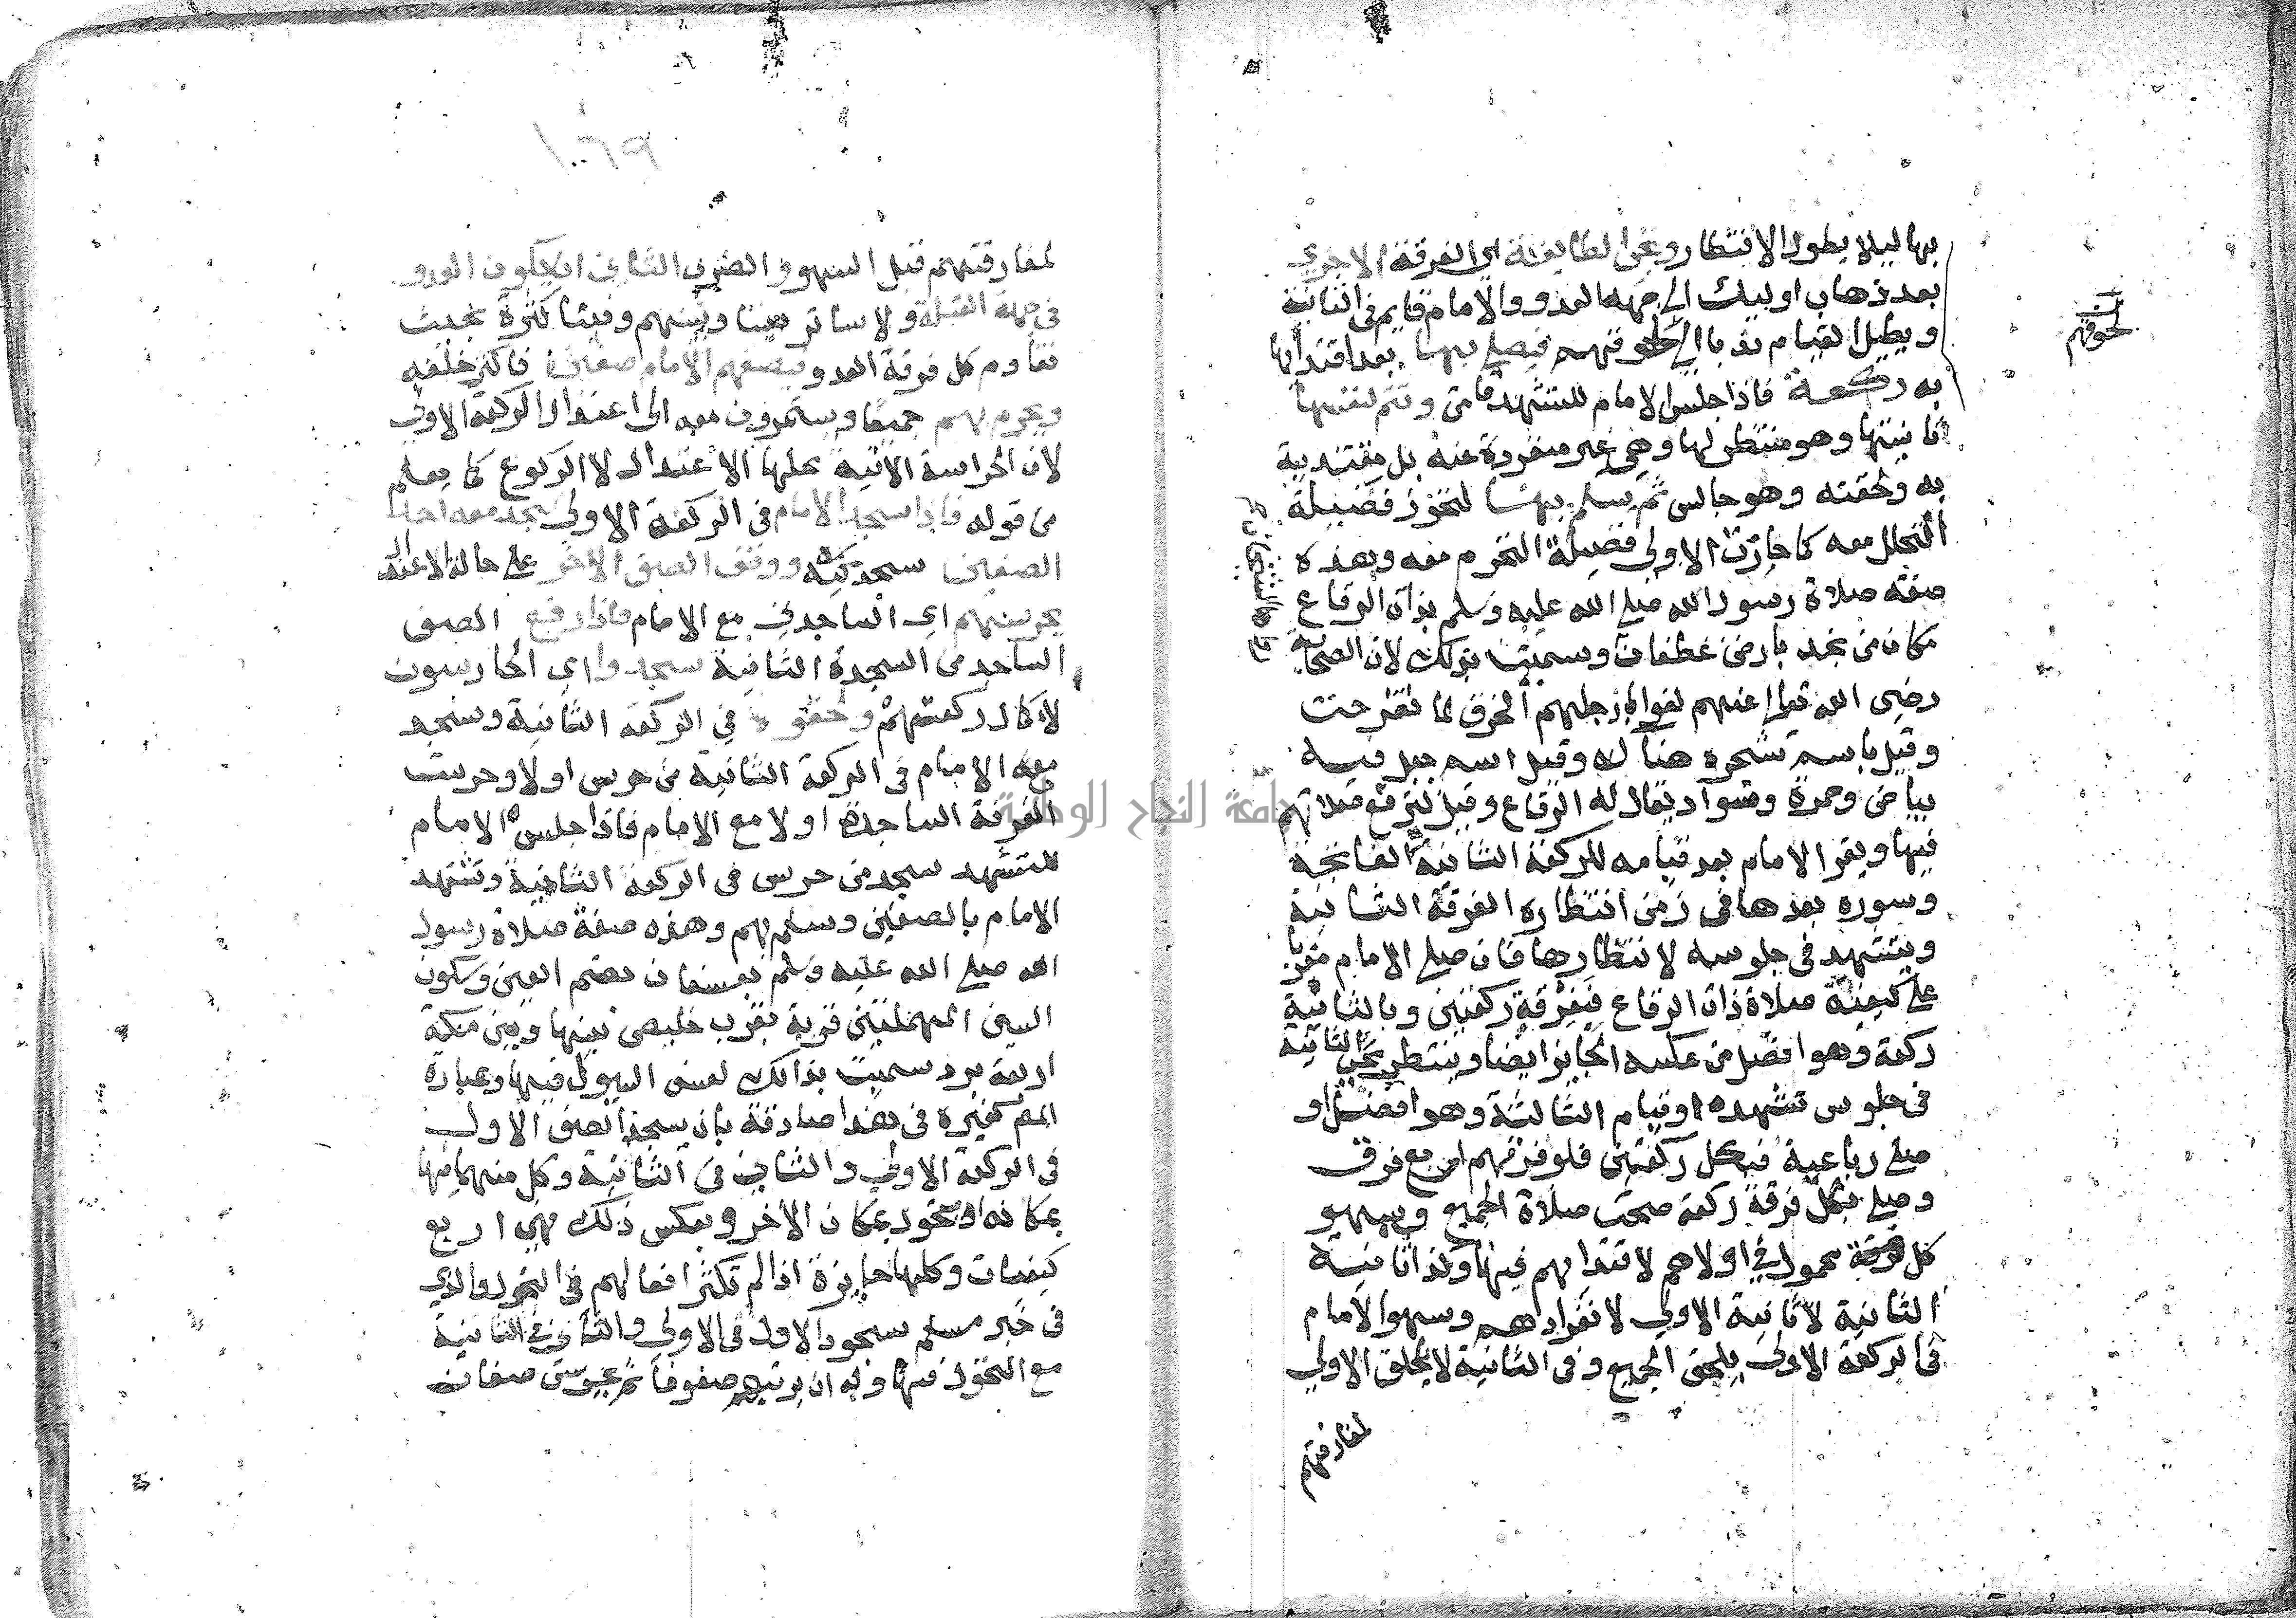 بها ليلا يطول الانتظار وتجي الطايفة اي الفرقة الاخري
بعد ذهاب اوليك الي جهة العدو والامام قايم في الثانية
ويطيل القيام ندبا الي لحوقهم فيصلي بها بعد اقتدايها
به ركعة فاذا جلس الامام للتشهد قامت وتتم لنفسها
ثانيتها وهو منتظر لها وهي غير منفردة عنه بل مقتدية
به ولحقته وهو جالس ثم يسلم بها لتحوز فضيلة
التحلل معه كما حازت الاولي فضيلة التحرم معه وهذه
صفة صلاة رسول الله صلي الله عليه وسلم بذات الرقاع
مكان من نجد بارض غطفان وسميت بذلك لان الصحابة
رضي الله تعالي عنهم لفوا بارجلهم الخرق لما تقرحت
وقيل باسم شجرة هناك وقيل اسم جبل فيه
بياض وحمرة وسواد يقال له الرقاع وقيل لترقع صلاتهم
فيها ويقرا الامام بعد قيامه للركعة الثانية الفاتحة
وسورة بعدها في زمن انتظاره الفرقة الثانية
ويتشهد في جلوسه لانتظارها فان صلي الامام مغربا
علي كيفية صلاة ذات الرقاع فبفرقة ركعتين وبالثانية
ركعة وهو افضل من عكسه الجايز ايضا وينتظر مجي الثانية
في جلوس تشهده او قيام الثالثة وهو افضل او
صلي رباعية فبكل ركعتين فلو فرقهم اربع فرق
وصلي بكل فرقة ركعة صحت صلاة الجميع وسهو
كل فرقة محمول في اولاهم لاقتدايهم فيها وكذا ثانية
الثانية لا ثانية الاولي لانفرادهم وسهو الامام
في الركعة الاولي يلحق الجميع وفي الثانية لا يلحق الاولي
لمفارقتهم
لحوقهم
١٠٦٩
لمفارقتهم قبل السهو والضرب الثاني ان يكون العدو
في جهة القبلة ولا ساتر بيننا وبينهم وفينا كثرة بحيث
تقاوم كل فرقة العدو فيصفهم الامام صفين فاكثر خلفه
ويحرم بهم جميعا ويستمرون معه الي اعتدال الركعة الاولي
لان الحراسة الاتية محلها الاعتدال لا الركوع كما يعلم
من قوله فاذا سجد الامام في الركعة الاولي سجد معه احد
الصفين سجدتيه ووقف الصف الاخر علي حالة الاعتدال
يحرسهم اي الساجدين مع الامام فاذا رفع الصف
الساجد من السجدة الثانية سجدوا اي الحارسون
لاكمال ركعتهم ولحقوه في الركعة الثانية وسجد
معه الامام في الركعة الثانية من حرس اولا وحرست
الفرقة الساجدة اولا مع الامام فاذا جلس الامام
للتشهد سجد من حرس في الركعة الثانية وتشهد
الامام بالصفين وسلم بهم وهذه صفة صلاة رسول
الله صلي الله عليه وسلم بعسفان بضم العين وسكون
السين المهملتين قرية بقرب خليص بينها وبين مكة
اربعة برد سميت بذالك لعسف السيول فيها وعبارة
المص كغيره في هذا صادقة بان يسجد الصف الاول
في الركعة الاولي والثاني في الثانية وكل منهما فيها
بمكانه او تحول بمكان الاخر وبعكس ذلك فهي اربع
كيفيات وكلها جايزة اذا لم تكثر افعالهم في التحول والذي
في خبر مسلم سجود الاول في الاولي والثاني في الثانية
مع التحول فيها وله ان يرتبهم صفوفا ثم يحرس صفان
جامعة النجاح الوطنية